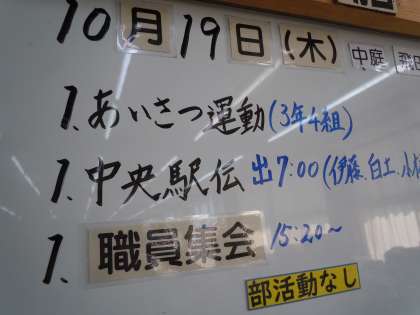 10月19日(木) 中庭
1、あいさつ運動(3年4組)
1、中央駅伝 出7:00(伊藤、白土、小
1、職員集会 15:20~
部活動なし